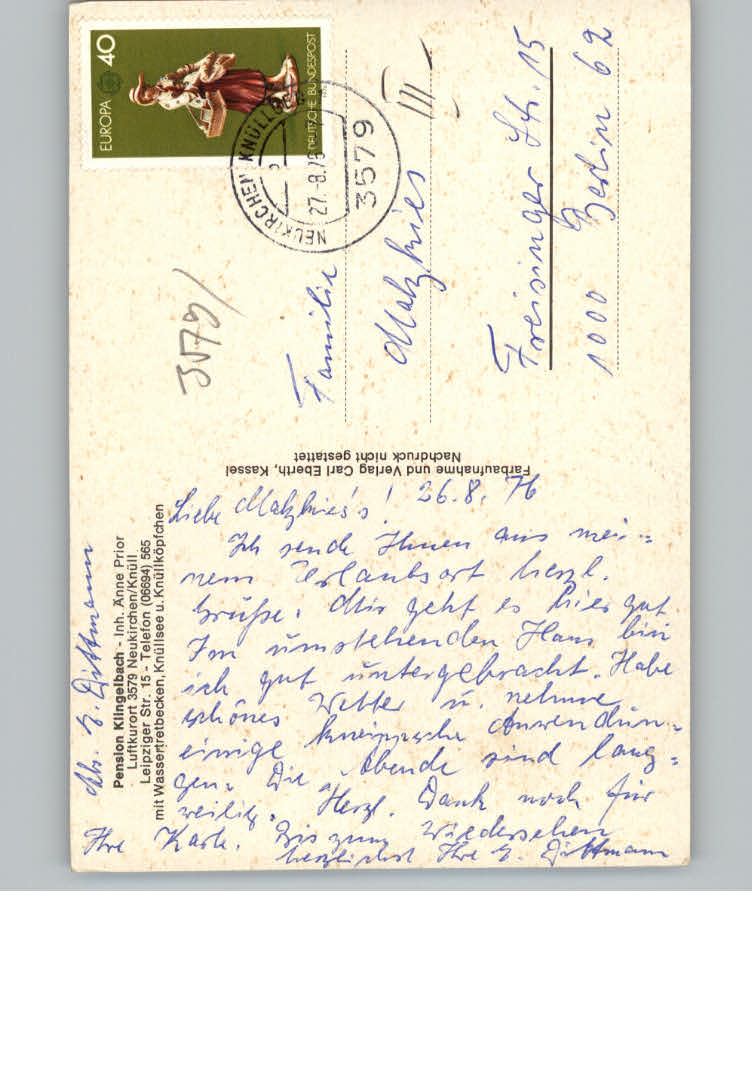 EUROPA 40
DEUTSCHE BUNDESPOST
NEUKIRCHEN KNÜLL
27.-8.76
3579
3579/
Familie
Malzkies III
Freisinger Str. 15
1000 Berlin 62
Farbaufnahme und Verlag Carl Eberth, Kassel
Nachdruck nicht gestattet
Abs. E. Dittmann
Pension Klingelbach - Inh. Änne Prior
Luftkurort 3579 Neukirchen/Knüll
Leipziger Str. 15 - Telefon (06694) 565
mit Wassertretbecken, Knüllsee u. Knüllköpfchen
26.8.76
Liebe Malzkies's!
Ich sende Ihnen aus mei-
nem Urlaubsort herzl.
Grüße. Mir geht es hier gut
Im umstehenden Haus bin
ich gut untergebracht. Habe
schönes Wetter u. nehme
einige kneippsche Anwendun-
gen. Die Abende sind lang-
weilig. Herzl. Dank noch für
Ihre Karte. Bis zum Wiedersehen
herzlichst Ihre E. Dittmann